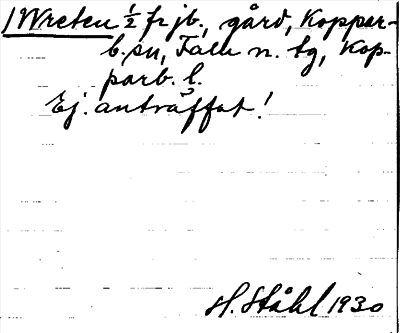 1 Wreten ½ fr jb., gård, Koppar-
b. sn, Falu n. tg, Kop-
parb. l.
Ej. anträffat!
H. Ståhl 1930